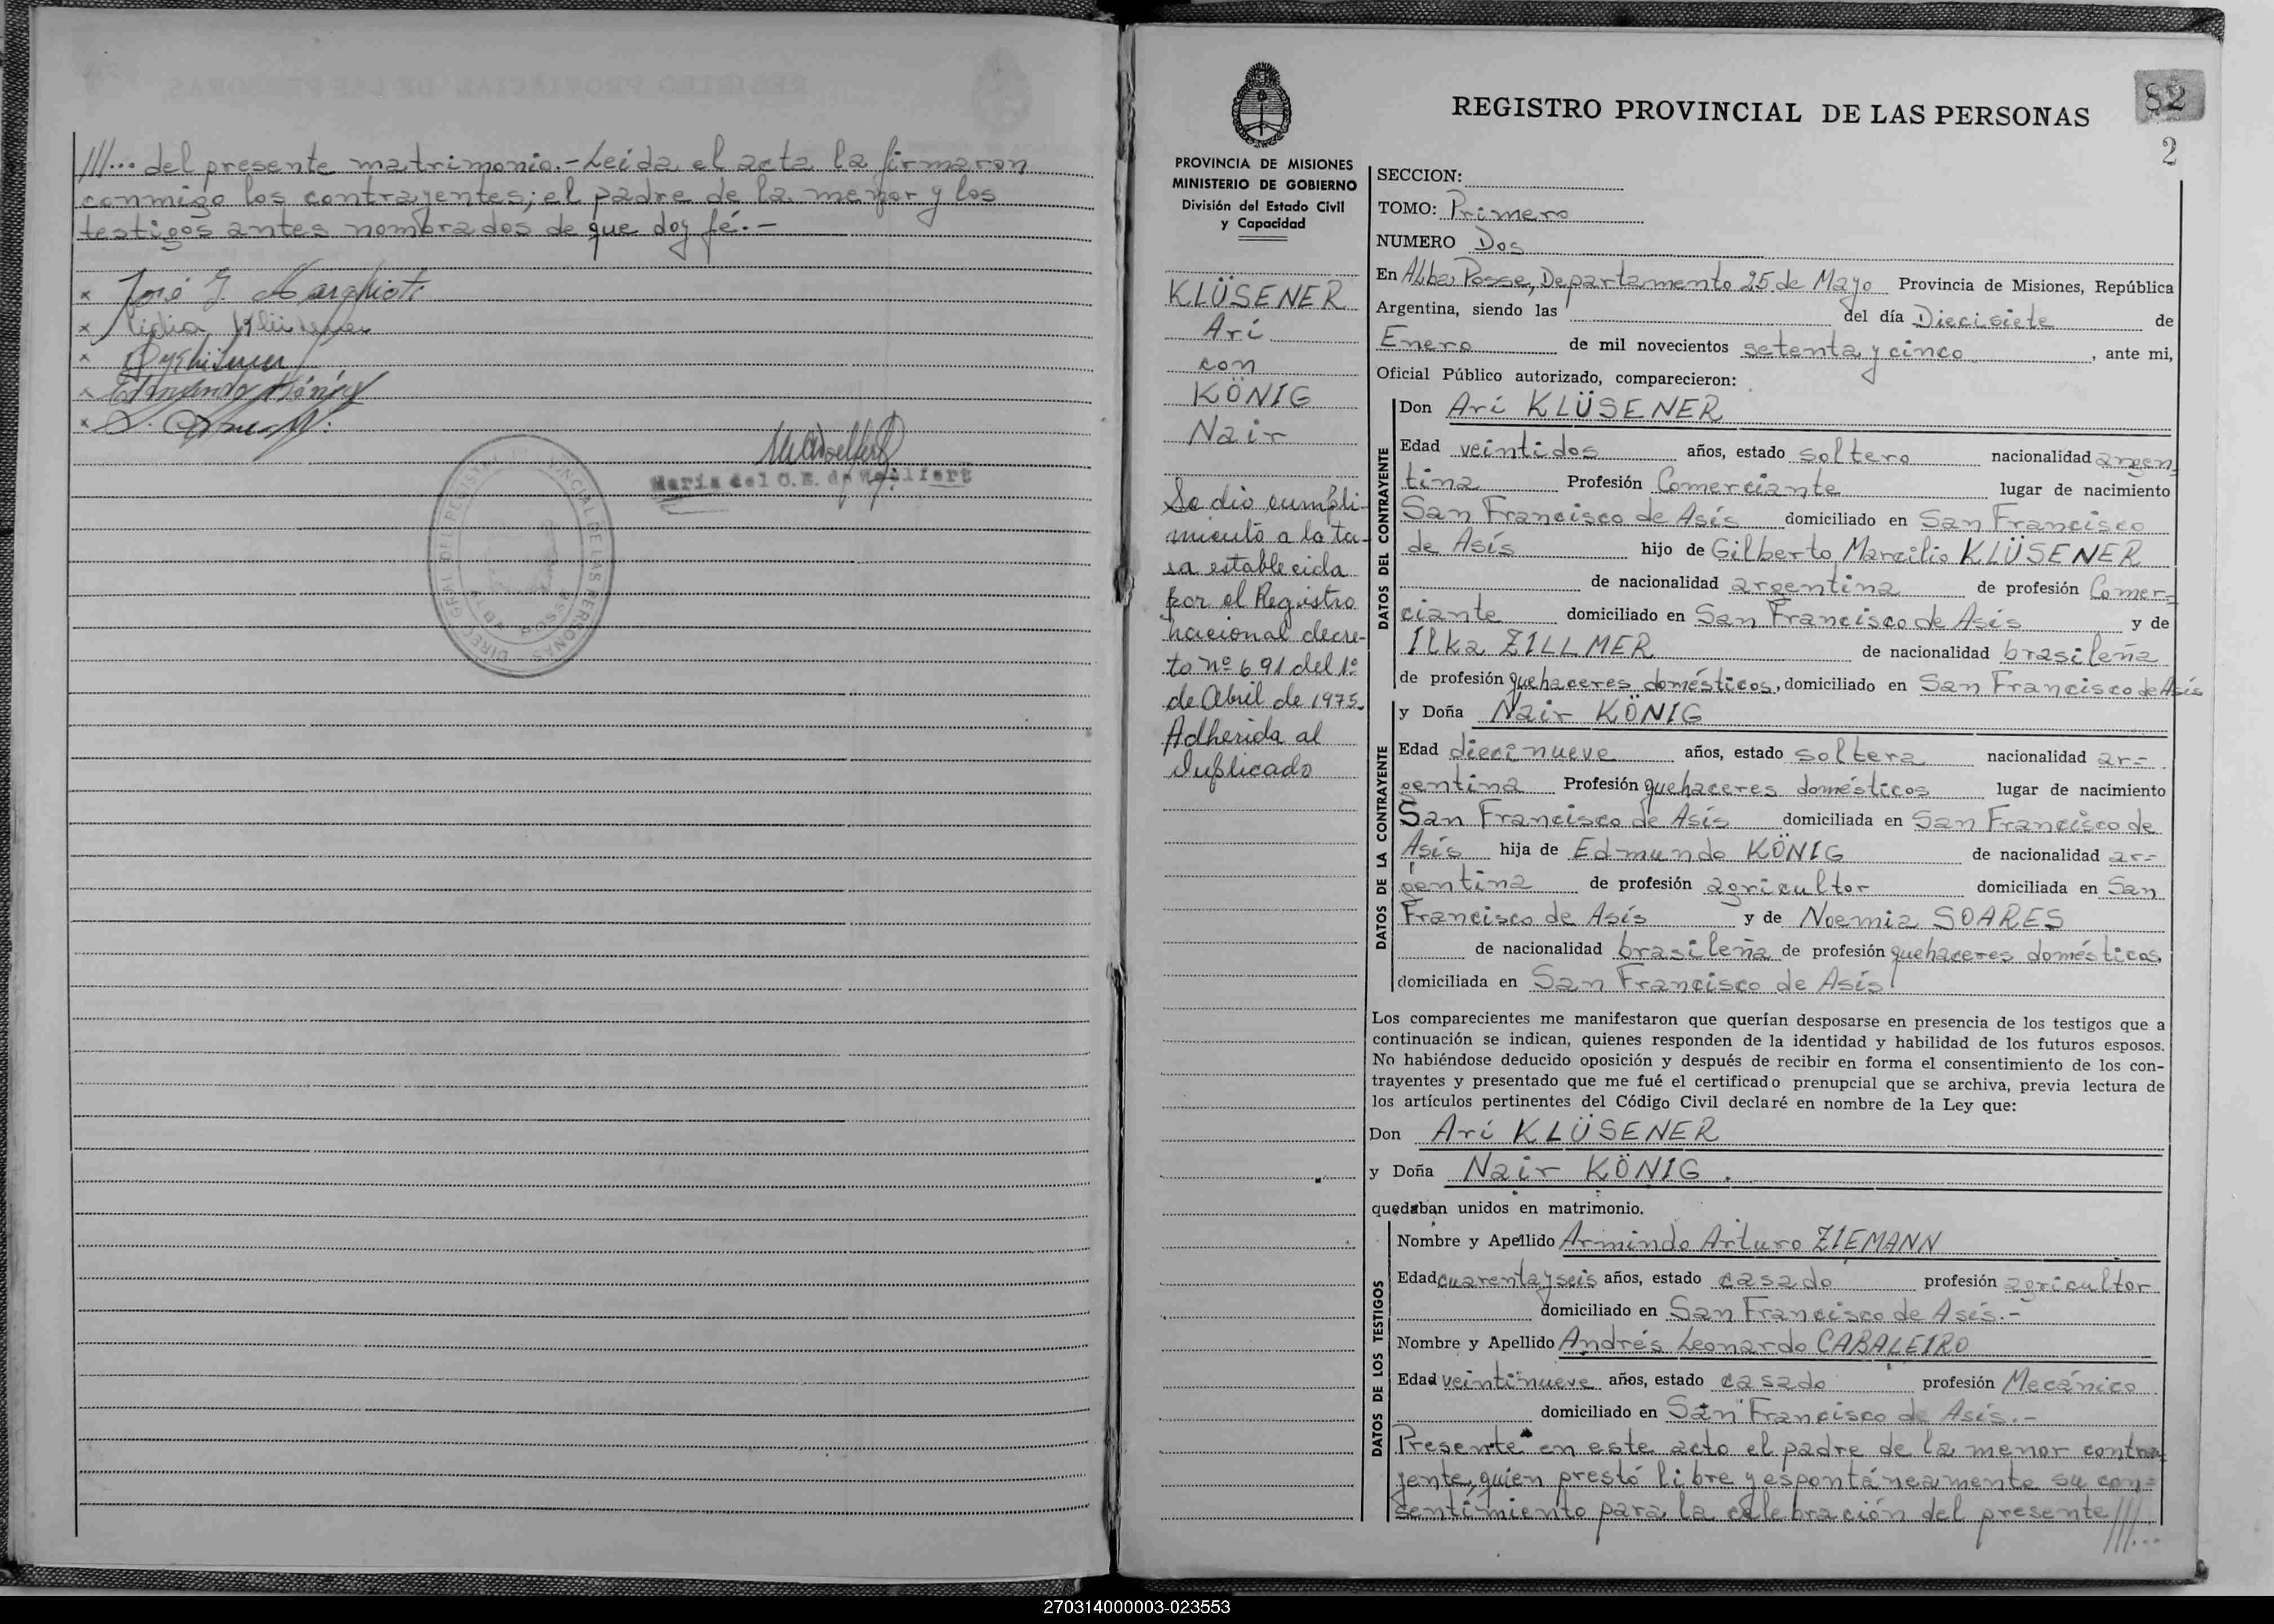 ///... del presente matrimonio.- Leída el acta la firmaran
conmigo los contrayentes; el padre de la menor y los
testigos antes nombrados de que doy fé.-
x José J.
x Ligia
x
x Edmundo König
x
María del C. E. de
DIREC. GRAL. DEL REGISTRO PROVINCIAL DE LAS PERSONAS
ALBA POSSE
REGISTRO PROVINCIAL DE LAS PERSONAS
82
2
PROVINCIA DE MISIONES
MINISTERIO DE GOBIERNO
División del Estado Civil
y Capacidad
KLÜSENER
Arí
con
KÖNIG
Nair
Se dio cumpli-
miento a la ta-
sa establecida
por el Registro
nacional decre-
to nº 691 del 1º
de Abril de 1975
Adherida al
duplicado
SECCION:
TOMO: Primero
NUMERO Dos
En Alba Posse, Departamento 25 de Mayo Provincia de Misiones, República
Argentina, siendo las del día Diecisiete de
Enero de mil novecientos setenta y cinco, ante mi,
Oficial Público autorizado, comparecieron:
DATOS DEL CONTRAYENTE
Don Arí KLÜSENER
Edad veintidos años, estado soltero nacionalidad argen=
tina Profesión Comerciante lugar de nacimiento
San Francisco de Asís domiciliado en San Francisco
de Asís hijo de Gilberto Marcilio KLÜSENER
de nacionalidad argentina de profesión Comer=
ciante domiciliado en San Francisco de Asís y de
Ilka ZILLMER de nacionalidad brasileña
de profesión quehaceres domésticos, domiciliado en San Francisco de Asís
DATOS DE LA CONTRAYENTE
y Doña Nair KÖNIG
Edad diecinueve años, estado soltera nacionalidad ar=
gentina Profesión quehaceres domésticos lugar de nacimiento
San Francisco de Asís domiciliada en San Francisco de
Asís hija de Edmundo KÖNIG de nacionalidad ar=
gentina de profesión agricultor domiciliada en San
Francisco de Asís y de Noemia SOARES
de nacionalidad brasileña de profesión quehaceres domésticos,
domiciliada en San Francisco de Asís
Los comparecientes me manifestaron que querían desposarse en presencia de los testigos que a
continuación se indican, quienes responden de la identidad y habilidad de los futuros esposos.
No habiéndose deducido oposición y después de recibir en forma el consentimiento de los con-
trayentes y presentado que me fué el certificado prenupcial que se archiva, previa lectura de
los artículos pertinentes del Código Civil declaré en nombre de la Ley que:
Don Arí KLÜSENER
y Doña Nair KÖNIG.
quedaban unidos en matrimonio.
DATOS DE LOS TESTIGOS
Nombre y Apellido Armindo Arturo ZIEMANN
Edad cuarenta y seis años, estado casado profesión agricultor
domiciliado en San Francisco de Asís.-
Nombre y Apellido Andrés Leonardo CABALEIRO
Edad veintinueve años, estado casado profesión Mecánico
domiciliado en San Francisco de Asís.-
Presente en este acto el padre de la menor contra-
yente, quien prestó libre y espontáneamente su con=
sentimiento para la celebración del presente///...
270314000003-023553